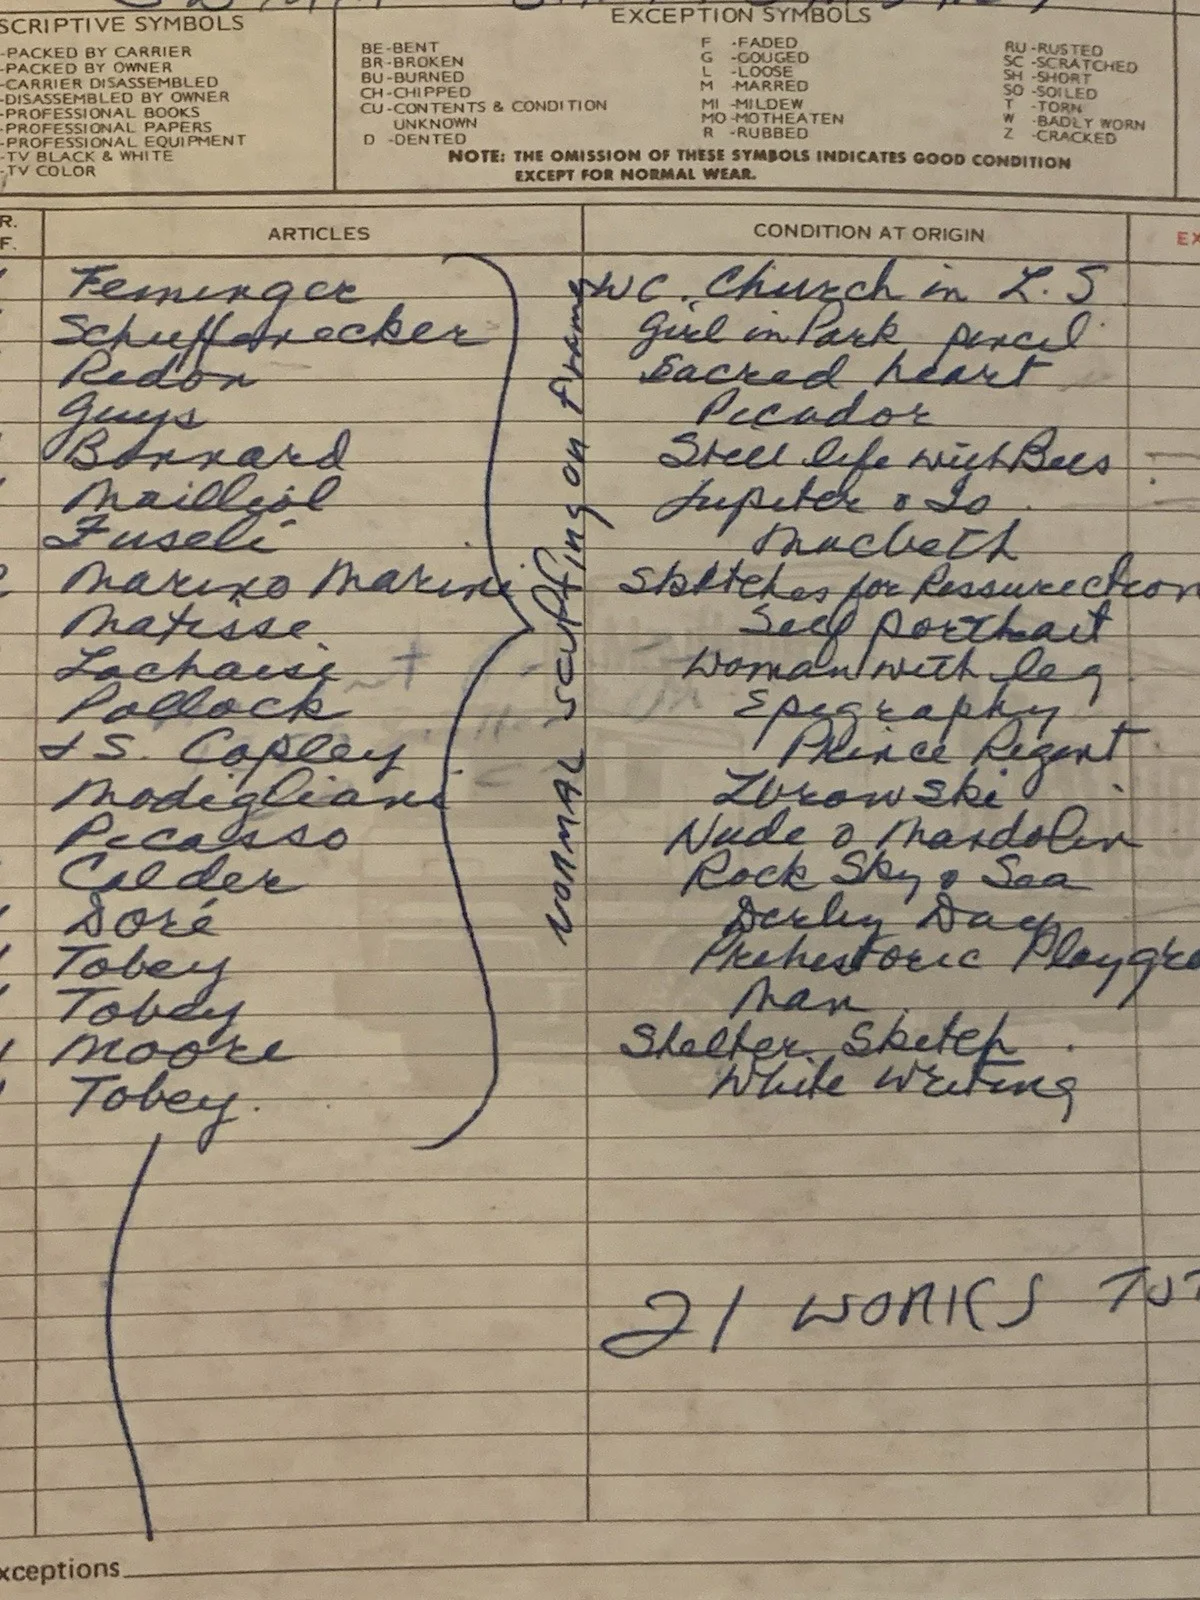 SCRIPTIVE SYMBOLS
-PACKED BY CARRIER
-PACKED BY OWNER
-CARRIER DISASSEMBLED
-DISASSEMBLED BY OWNER
-PROFESSIONAL BOOKS
-PROFESSIONAL PAPERS
-PROFESSIONAL EQUIPMENT
-TV BLACK & WHITE
-TV COLOR
EXCEPTION SYMBOLS
BE-BENT
BR-BROKEN
BU-BURNED
CH-CHIPPED
CU-CONTENTS & CONDITION
UNKNOWN
D -DENTED
F -FADED
G -GOUGED
L -LOOSE
M -MARRED
MI -MILDEW
MO-MOTHEATEN
R -RUBBED
RU-RUSTED
SC -SCRATCHED
SH -SHORT
SO -SOILED
T -TORN
W -BADLY WORN
Z -CRACKED
NOTE: THE OMISSION OF THESE SYMBOLS INDICATES GOOD CONDITION
EXCEPT FOR NORMAL WEAR.
R.
F.
ARTICLES
CONDITION AT ORIGIN
EX
Feininger WC. Church in L.S
Schuffenecker Girl in Park pencil
Redon Sacred heart
Guys Picador
Bonnard Still life with Bees
Mailliol Jupiter & Io
Fuseli Macbeth
Marino Marini Sketches for Ressurection
Matisse Self portrait
Lachaise Woman with leg
Pollock Epigraphy
J S. Copley Prince Regent
Modigliani Zborowski
Picasso Nude & Mandolin
Calder Rock Sky & Sea
Doré Derby Day
Tobey Prehistoric Playgro
Tobey Man
Moore Shelter Sketch
Tobey. White Writing
NORMAL SCUFFING ON FRAMES
21 WORKS TOT
xceptions